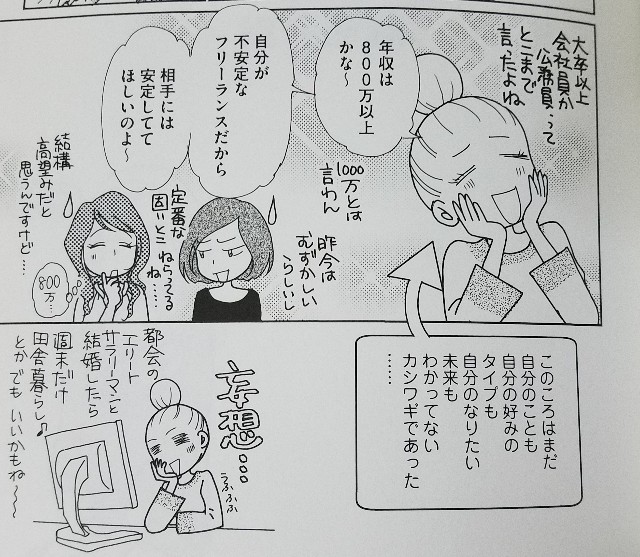 大卒以上
会社員か
公務員…って
とこまで
言ったよね
年収は
800万以上
かな〜
1000万とは
言わん
昨今は
むずかしい
らしいし
自分が
不安定な
フリーランスだから
相手には
安定してて
ほしいのよ〜
定番な
固いとこ
ねらってる
ね……
結構
高望みだと
思うんですけど……
800
万…
このころはまだ
自分のことも
自分の好みの
タイプも
自分のなりたい
未来も
わかってない
カシワギであった
……
妄想…
うふふふ
都会の
エリート
サラリーマンと
結婚したら
週末だけ
田舎暮らし♪
とかでもいいかもね〜〜